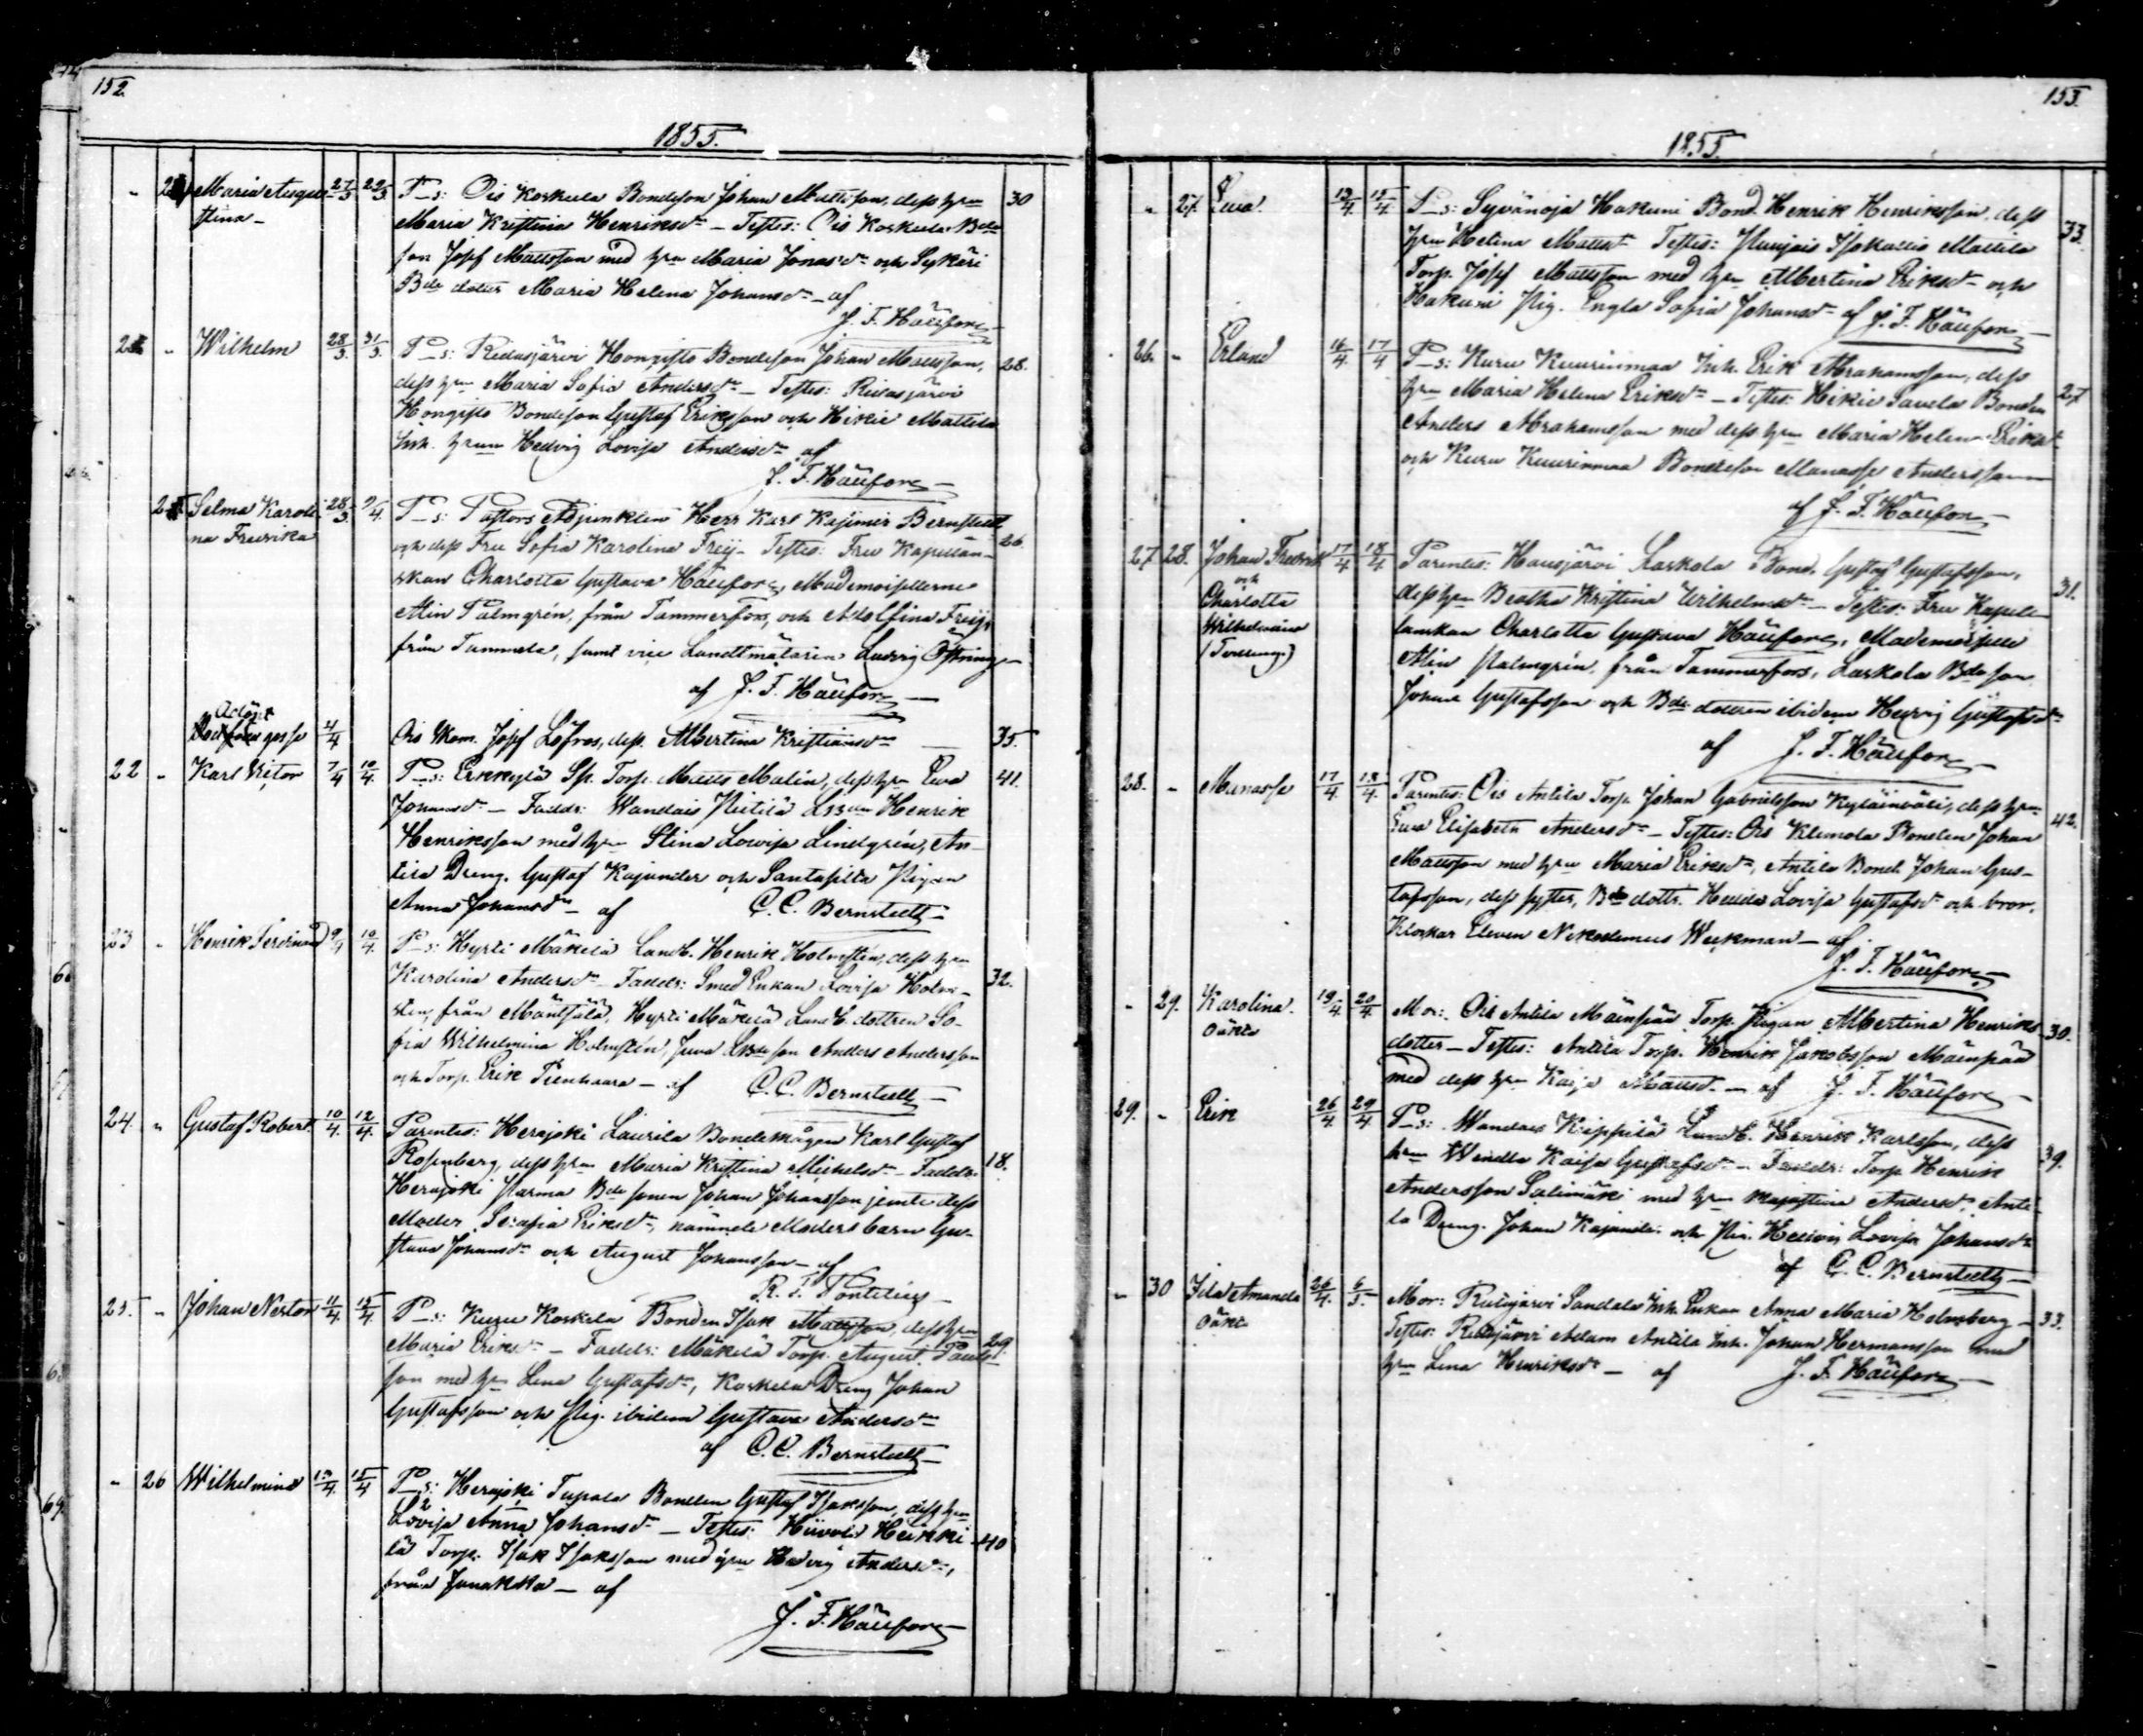 152.
1855.
Maria Augu- 27/3 29/3 P_s: Ois Koskela Bondeson Johan Mattsson, dess hru 30
stina - Maria Kristina Henriksdr - Testes: Ois Koskela Bde
son Josef Mattsson med hru Maria Jonasdr och Sykäri
Bde dotter Maria Helena Johansdr - af
J. F. Häufors
Wilhelm 28/3 31/3 P_s: Ridasjärvi Hongisto Bondeson Johan Mattsson, 28.
dess hru Maria Sofia Andersdr - Testes: Ridasjärvi
Hongisto Bondeson Gustaf Eriksson och Hikiä Mattila
Inh. hrun Hedvig Lovisa Andersdr af
J. F. Häufors
Selma Karoli- 28/3 P_s: Pastors Adjunkten Herr Karl Kasimir Bernstedt 26.
na Fredrika och dess Fru Sofia Karolina Frey - Testes: Fru Kapellan-
skan Charlotta Gustava Häufors, Mademoisellerne
Alin Palmgrén, från Tammerfors, och Adolfina Frey,
från Tammela, samt vice Landtmätaren Ludvig
af J. F. Häufors
Adopt
gosse 4/4 Ois Skom. Josef Löfros, dess Albertina Kristiansdr 35.
22 " Karl Victor 7/4 10/4 P_s: Erkkylä Sp. Torp. Matts Malin, dess hru Eva 41.
Johansdr - Faddr: Wandais Pietilä Lbden Henrik
Henriksson med hru Stina Lovisa Lindgrén, An-
tila Dreng. Gustaf Kajander och Santasilta Pigan
Anna Johansdr - af C. C. Bernstedt
23 " Henrik Ferdinand 9/4 10/4 P_s: Hyrti Mäkelä Landb. Henrik Holmstén, dess hru 32.
Karolina Andersdr - Faddr: Smed Enkan Lovisa Holm-
stén, från Mäntsälä, Hyrti Mäkelä Landb. dottren So-
fia Wilhelmina Holmstén, Juva Lbde son Anders Andersson
och Torp. Erik Pienhaara - af C. C. Bernstedt
24. " Gustaf Robert. 10/4 12/4 Parentes: Herajoki Laurila Bondemågen Karl Gustaf 18.
Rosenberg, dess hru Maria Kristina Michelsdr - Faddr:
Herajoki Parma Bde sonen Johan Johansson jemte dess
Moder Serafia Eriksdr, nämnde Moders barn Gu-
stava Johansdr och August Johansson - af
R. F. Pontelius
25. " Johan Nestor 11/4 15/4 P_s: Kuru Koskela Bonden Isak Mattsson, dess hru 29.
Maria Eriksdr - Faddr: Mäkelä Torp. August Pauls-
son med hru Lena Gustafsdr, Koskela Dreng Johan
Gustafsson och Pig. ibidem Gustava Andersdr
af C. C. Bernstedt
" 26 Wilhelmina 13/4 15/4 P_s: Herajoki Tupala Bonden Gustaf Isaksson, dess hru
Lovisa Anna Johansdr - Testes: Heikki- 40
lä Torp. Isak Isaksson med hru Hedvig Andersdr,
från Janakkala - af
J. F. Häufors
153.
1855.
" 27. Eva. 13/4 15/4 P_s: Syvänoja Hakuni Bond. Henrik Henriksson, dess 33.
hru Helena Mattsdr Testes: Isokallio Mattila
Torp. Josef Mattsson med hru Albertina Eriksdr och
Hakuni Pig. Engla Sofia Johansdr af J. F. Häufors
26. " Erland 16/4 17/4 P_s: Kuru Kuurinmaa Inh. Erik Abrahamsson, dess 27
hru Maria Helena Eriksdr - Testes: Hikiä Savela Bonden
Anders Abrahamsson med dess hru Maria Helena Eriksdr
och Kuru Kuurinmaa Bondeson Manasse Andersson
af J. F. Häufors
27. 28. Johan Fredrik 17/4 18/4 Parentes: Hausjärvi Laskola Bond. Gustaf Gustafsson, 31.
och dess hru Beatha Kristina Wilhelmsdr - Testes: Fru Kapel-
Charlotta lanskan Charlotta Gustava Häufors, Mademoiselle
Wilhelmina Alin Palmgrén, från Tammerfors, Laskola Bde son
(Tvilling.) Johan Gustafsson och Bde dottren ibidem Hedvig Gustafsdr
af J. F. Häufors
28. " Manasse 17/4 18/4 Parentes: Ois Antila Torp. Johan Gabrielsson Kyläinväli, dess hru 42.
Eva Elisabeth Andersdr - Testes: Ois Klemola Bonden Johan
Mattsson med hru Maria Eriksdr, Antila Bond. Johan Gus-
tafsson, dess syster, Bde dottr. Hedda Lovisa Gustafsdr och bror,
Klockar Eleven Nikodemus Weckman - af
J. F. Häufors
" 29. Karolina. 19/4 20/4 Mor: Ois Antila Mäenpää Torp. Pigan Albertina Henriks- 30.
oäkta dotter - Testes: Antila Torp. Henrik Jakobsson Mäenpää
med dess hru Kaisa Mattsdr. - af J. F. Häufors
29. " Erik 26/4 29/4 P_s: Wandais Kippilä Landb. Henrik Karlsson, dess 39.
hru Wendla Kaisa Gustafsdr - Faddr: Torp. Henrik
Andersson Salimäki med hru Majastina Andersdr, Anti-
la Dreng. Johan Kajander och Pig. Hedvig Lovisa Johansdr
af C. C. Bernstedt
" 30 Ida Amanda 26/4 6/5 Mor: Ridasjärvi Sandala Inh. Enkan Anna Maria Holmberg - 33.
oäkta Testes: Ridasjärvi Adam Antila Inh. Johan Hermansson med
hru Lena Henriksdr - af J. F. Häufors